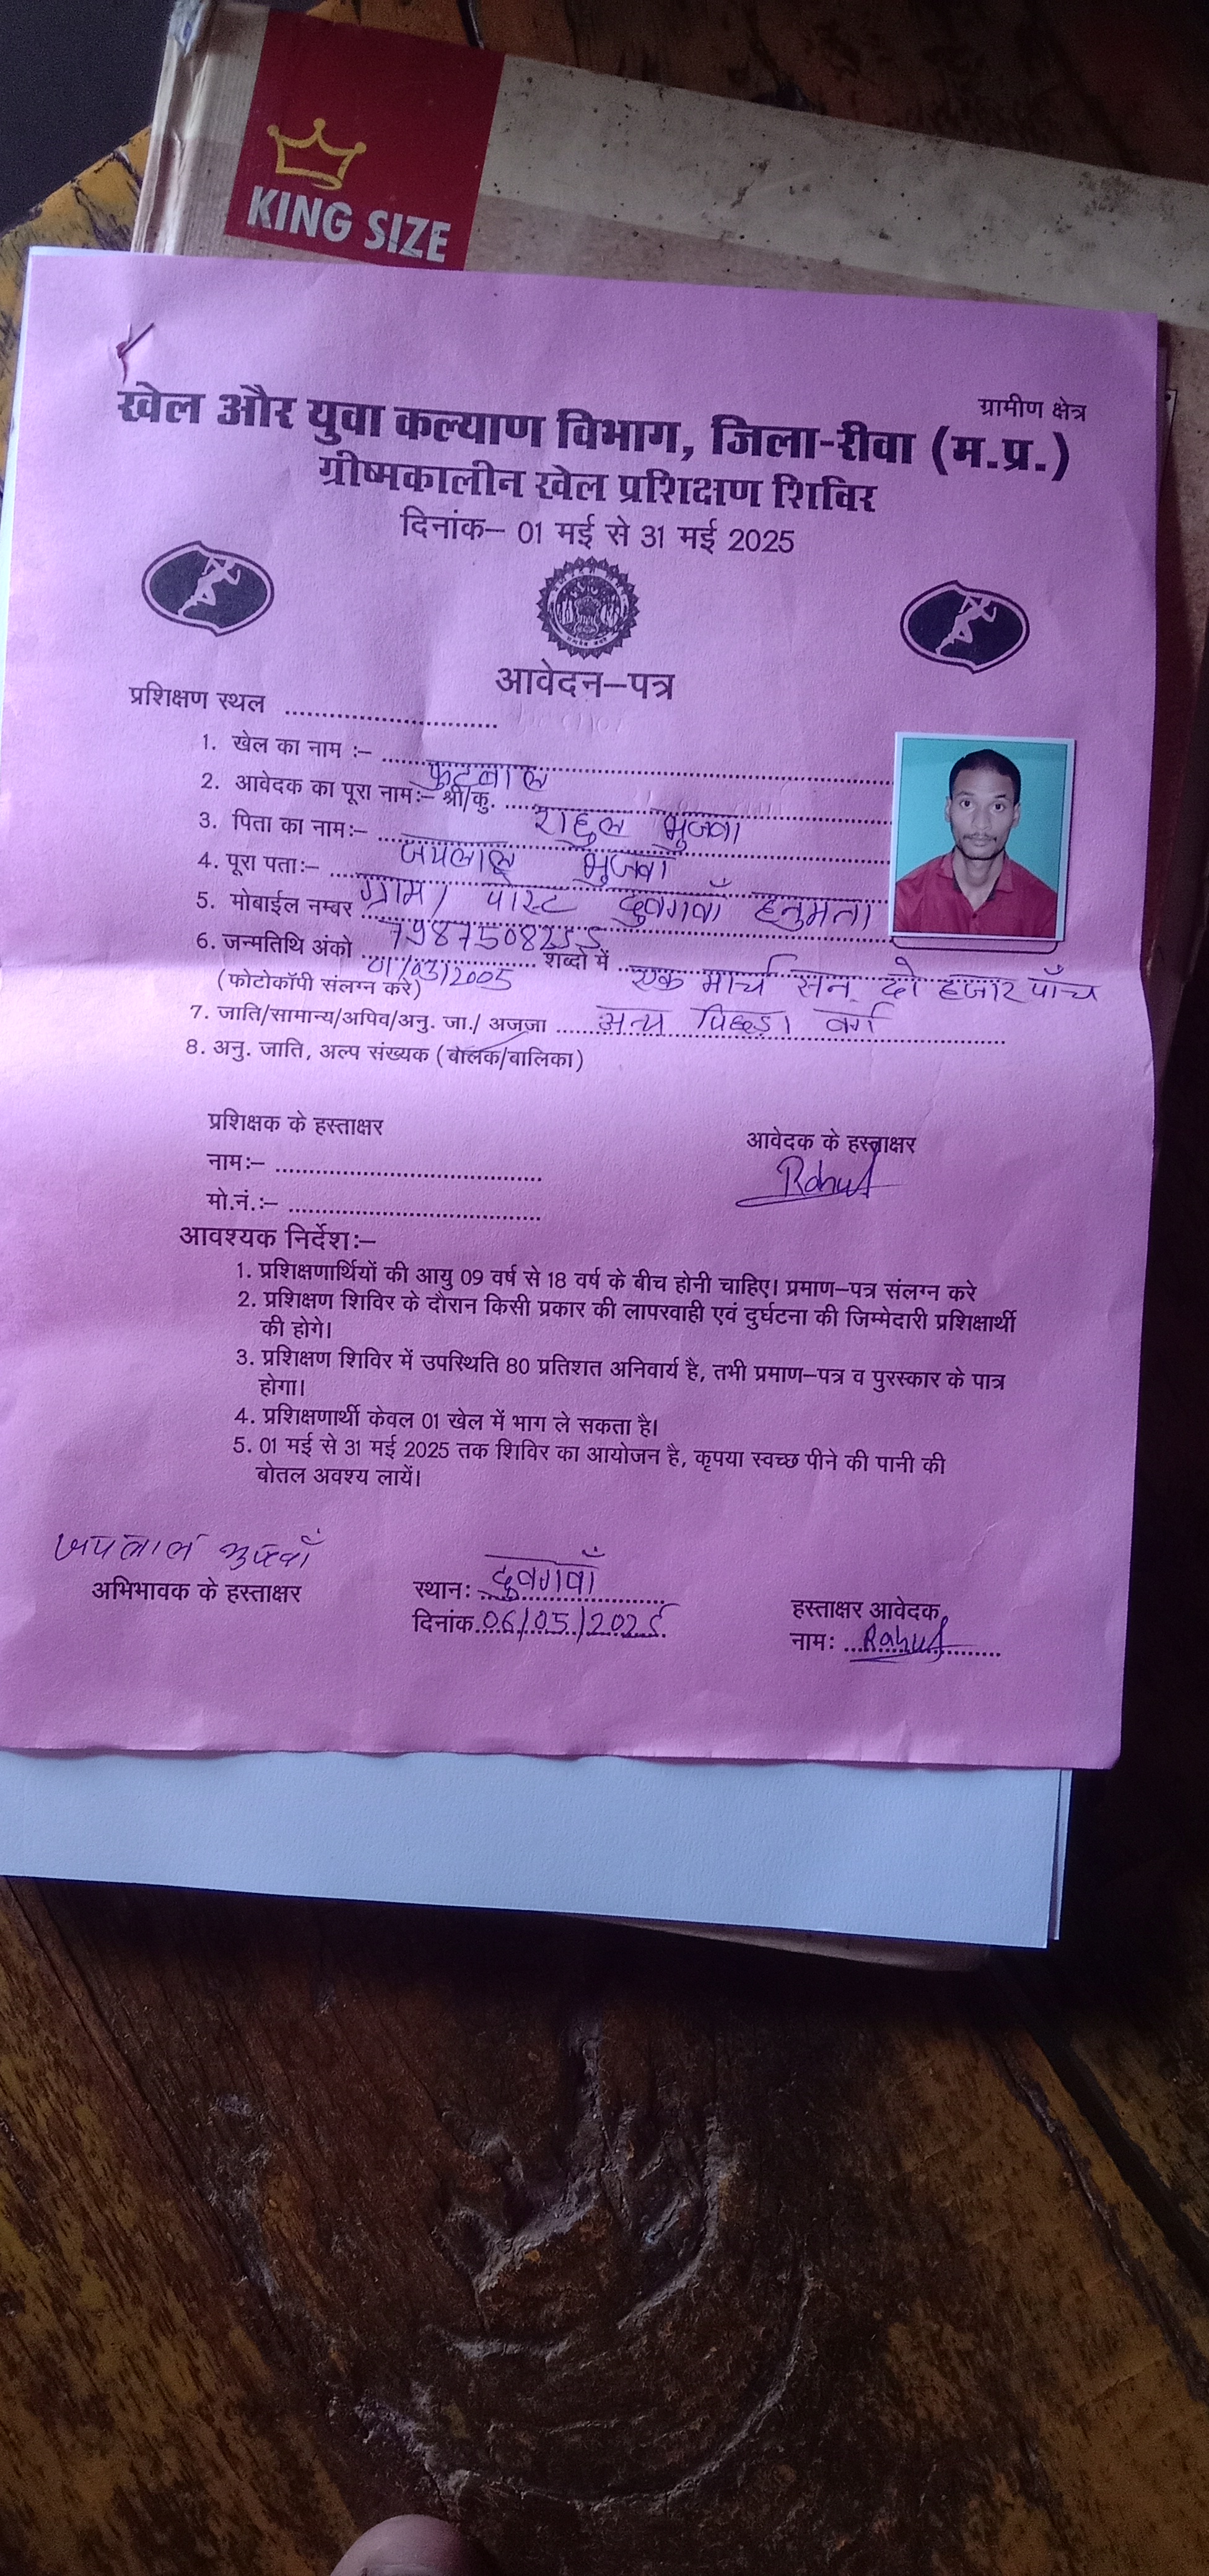 KING SIZE
ग्रामीण क्षेत्र
खेल और युवा कल्याण विभाग, जिला-रीवा (म.प्र.)
ग्रीष्मकालीन खेल प्रशिक्षण शिविर
दिनांक– 01 मई से 31 मई 2025
आवेदन–पत्र
प्रशिक्षण स्थल ..............................
1. खेल का नाम :– फुटबाल
2. आवेदक का पूरा नामः– श्री/कु. राहुल भुजवा
3. पिता का नामः– जयलाल भुजवा
4. पूरा पताः– ग्राम/ पोस्ट दुवगवाँ हनुमना
5. मोबाईल नम्बर 7987508255
6. जन्मतिथि अंको 01/03/2005 शब्दो में एक मार्च सन् दो हजार पाँच
(फोटोकॉपी संलग्न करे)
7. जाति/सामान्य/अपिव/अनु. जा./ अजजा अन्य पिछड़ा वर्ग
8. अनु. जाति, अल्प संख्यक (बालक/बालिका)
प्रशिक्षक के हस्ताक्षर
आवेदक के हस्ताक्षर
नामः– ..............................
Rahul
मो.नं.:– ..............................
आवश्यक निर्देशः–
1. प्रशिक्षणार्थियों की आयु 09 वर्ष से 18 वर्ष के बीच होनी चाहिए। प्रमाण–पत्र संलग्न करे
2. प्रशिक्षण शिविर के दौरान किसी प्रकार की लापरवाही एवं दुर्घटना की जिम्मेदारी प्रशिक्षार्थी
की होगे।
3. प्रशिक्षण शिविर में उपस्थिति 80 प्रतिशत अनिवार्य है, तभी प्रमाण–पत्र व पुरस्कार के पात्र
होगा।
4. प्रशिक्षणार्थी केवल 01 खेल में भाग ले सकता है।
5. 01 मई से 31 मई 2025 तक शिविर का आयोजन है, कृपया स्वच्छ पीने की पानी की
बोतल अवश्य लायें।
जयलाल भुजवाँ
अभिभावक के हस्ताक्षर
स्थानः दुवगवाँ
दिनांक 06/05/2025
हस्ताक्षर आवेदक
नामः Rahul